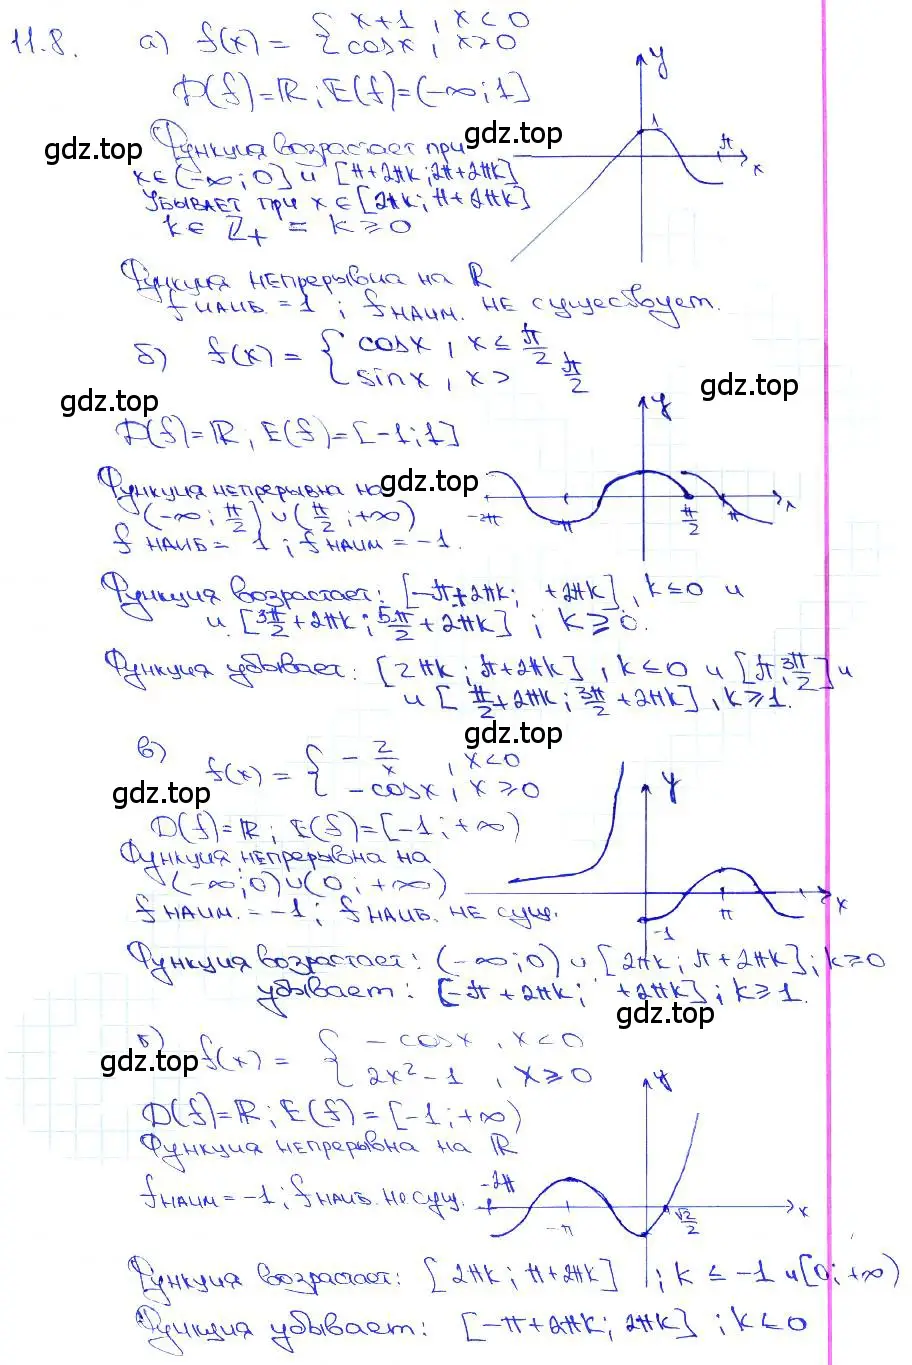 11.8. а) f(x) = { x+1 , x < 0
cosx , x ≥ 0
D(f)=ℝ ; E(f)=(-∞;1]
Функция возрастает при
x∈(-∞;0] и [π+2πk;2π+2πk]
Убывает при x∈[2πk;π+2πk]
k∈ ℤ+ = k≥0
Функция непрерывна на ℝ
fнаиб. = 1 ; fнаим. не существует.
y
1
π
x
gdz.top
gdz.top
б) f(x) = { cosx , x ≤ π/2
sinx , x > π/2
gdz.top
gdz.top
D(f)=ℝ ; E(f)=[-1;1]
Функция непрерывна на
gdz.top
(-∞;π/2] ∪ (π/2;+∞)
fнаиб = 1 ; fнаим = -1.
y
-2π
-π
π/2
π
x
Функция возрастает: [-π+2πk; +2πk] , k≤0 и
и [3π/2+2πk;5π/2+2πk] ; k≥0.
Функция убывает: [2πk;π+2πk] , k≤0 и [π;3π/2] и
и [π/2+2πk;3π/2+2πk] , k≥1.
gdz.top
в) f(x) = { -2/x , x<0
-cosx , x≥0
gdz.top
D(f)=ℝ ; E(f)=[-1;+∞)
Функция непрерывна на
(-∞;0)∪(0;+∞)
fнаим. = -1 ; fнаиб. не сущ.
y
-1
π
x
Функция возрастает: (-∞;0) ∪ [2πk;π+2πk] ; k≥0
убывает: [-π+2πk; +2πk] ; k≥1.
gdz.top
gdz.top
f(x) = { -cosx , x<0
2x²-1 , x≥0
D(f)=ℝ ; E(f)=[-1;+∞)
Функция непрерывна на ℝ
fнаим = -1 ; fнаиб. не сущ.
y
-2π
-π
√2/2
x
Функция возрастает: [2πk;π+2πk] ; k≤-1 и [0;+∞)
Функция убывает: [-π+2πk;2πk] ; k≤0